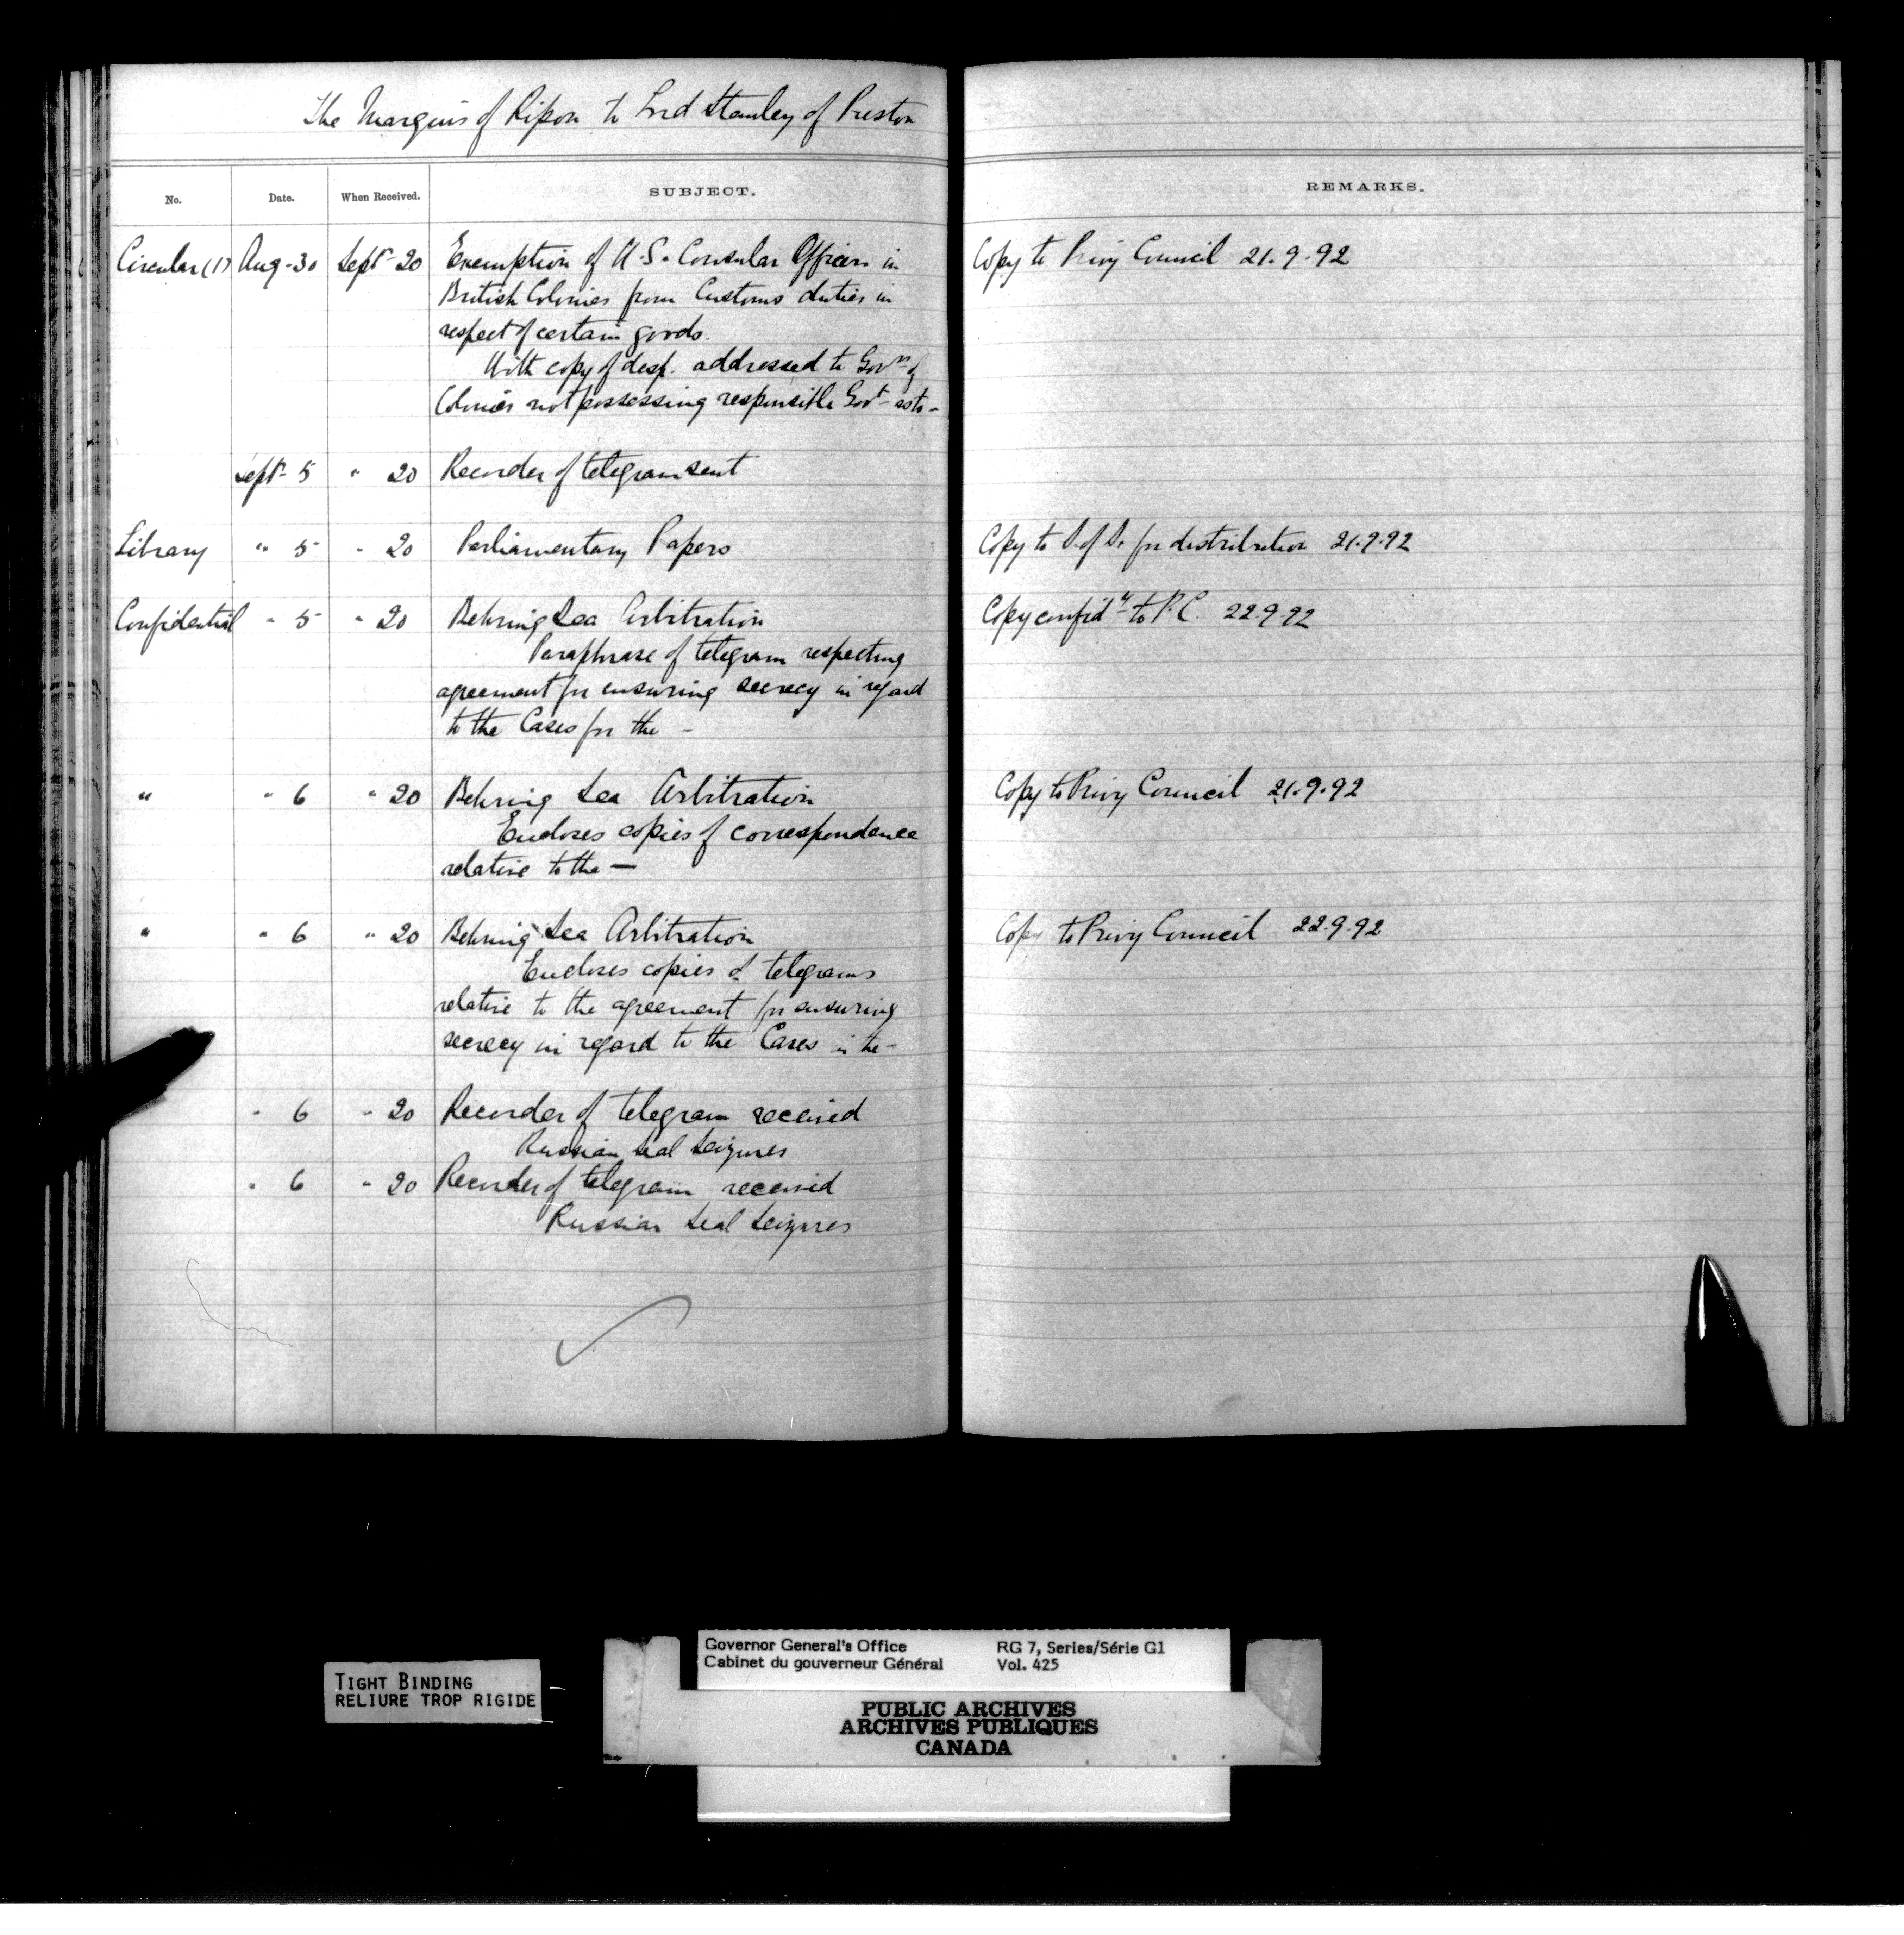 The Marquis of Ripon to Lord Stanley of Preston
No. Date. When Received. SUBJECT. REMARKS.
Circular (1) Aug - 30 Sept 20 Exemption of U.S. Consular Officers in Copy to Privy Council 21.9.92
British Colonies from Customs duties in
respect of certain goods.
With copy of desp. addressed to Govrs of
Colonies not possessing responsible Govt as to -
Sept 5 " 20 Recorder of telegram sent
Library " 5 " 20 Parliamentary Papers Copy to S. of S. for distribution 21.9.92
Confidential " 5 " 20 Behring Sea Arbitration Copy confidly to P.C. 22.9.92
Paraphrase of telegram respecting
agreement for ensuring secrecy in regard
to the Cases for the -
" " 6 " 20 Behring Sea Arbitration Copy to Privy Council 21.9.92
Encloses copies of correspondence
relative to the —
" " 6 " 20 Behring Sea Arbitration Copy to Privy Council 22.9.92
Encloses copies of telegrams
relative to the agreement for ensuring
secrecy in regard to the Cases in the -
" 6 " 20 Recorder of telegram received
Russian Seal Seizures
" 6 " 20 Recorder of telegram received
Russian Seal Seizures
Governor General's Office RG 7, Series/Série G1
Cabinet du gouverneur Général Vol. 425
TIGHT BINDING
RELIURE TROP RIGIDE
PUBLIC ARCHIVES
ARCHIVES PUBLIQUES
CANADA